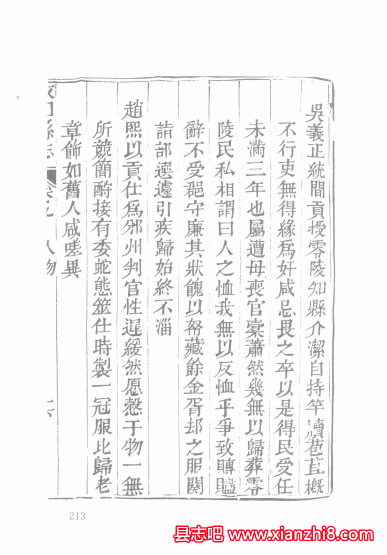 吳義正統間貢授零陵知縣介潔自持竿牘苞苴概
不行吏無得緣爲奸咸忌畏之卒以是得民受任
未滿三年也屬遭母喪官橐蕭然幾無以歸葬零
陵民私相謂曰人之恤我無以反恤乎爭致賻賵
辭不受郡守廉其狀餽以帑藏餘金胥却之服闋
請部遷遽引疾歸始終不淄
趙熙以貢仕爲邠州判官性遲緩然愿慤于物一無
所競簡酧接有委蛇態筮仕時製一冠服比歸老
章飾如舊人咸嗟異
縣志
人物
213
县志吧www.xianzhi8.com